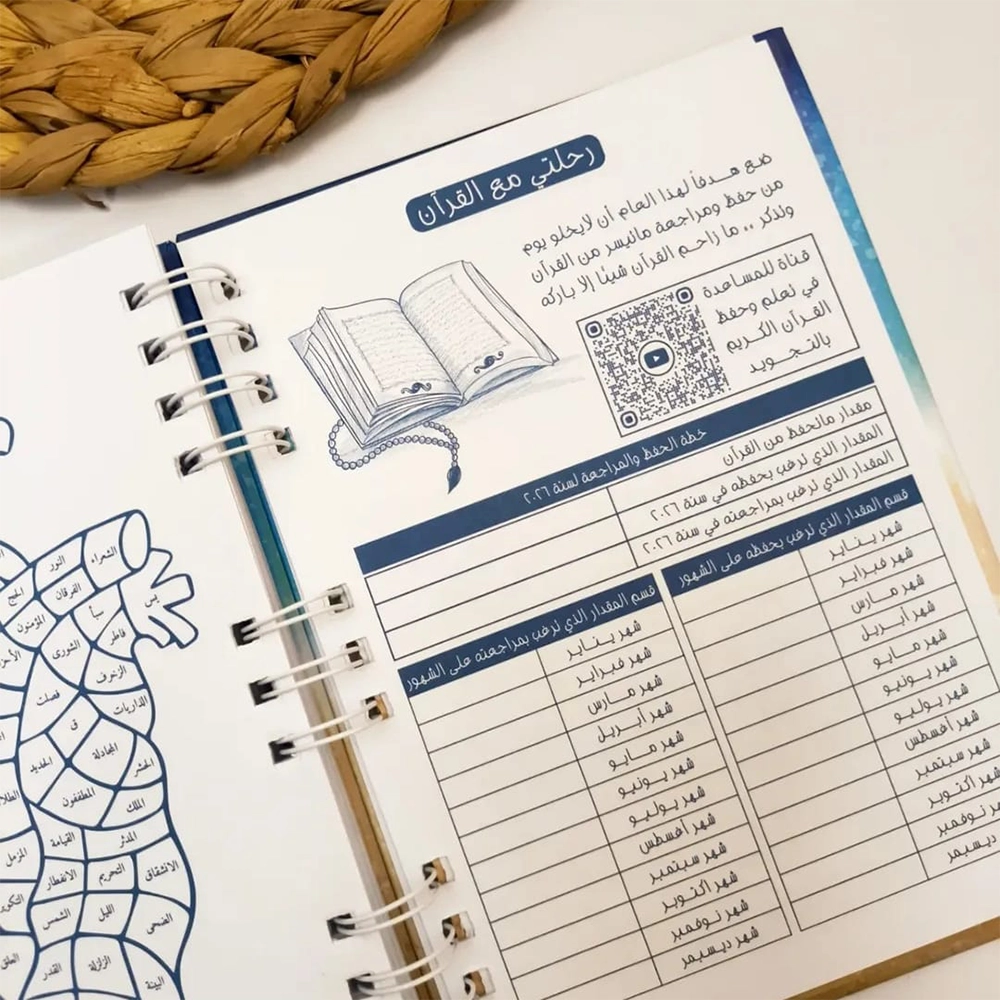 رحلتي مع القرآن
ضع هدفاً لهذا العام أن لايخلو يوم
من حفظ ومراجعة ماتيسر من القرآن
وتذكر .. ما زاحم القرآن شيئاً إلا باركه
قناة للمساعدة
في تعلم وحفظ
القرآن الكريم
بالتجويد
خطة الحفظ والمراجعة لسنة ٢٠٢٦
مقدار ماتحفظ من القرآن
المقدار الذي ترغب بحفظه في سنة ٢٠٢٦
المقدار الذي ترغب بمراجعته في سنة ٢٠٢٦
قسم المقدار الذي ترغب بحفظه على الشهور
شهر يناير
شهر فبراير
شهر مارس
شهر أبريل
شهر مايو
شهر يونيو
شهر يوليو
شهر أغسطس
شهر سبتمبر
شهر أكتوبر
نوفمبر
ديسمبر
قسم المقدار الذي ترغب بمراجعته على الشهور
شهر يناير
شهر فبراير
شهر مارس
شهر أبريل
شهر مايو
شهر يونيو
شهر يوليو
شهر أغسطس
شهر سبتمبر
شهر أكتوبر
شهر نوفمبر
شهر ديسمبر
الشعراء
النور
الحج
الفرقان
المؤمنون
يس
سبأ
فاطر
الشورى
الزخرف
فصلت
الذاريات
ق
المجادلة
الحديد
الحشر
المطففون
الملك
المدثر
القيامة
المزمل
الانشقاق
التحريم
الانفطار
الضحى
الليل
الشمس
الزلزلة
القدر
البينة